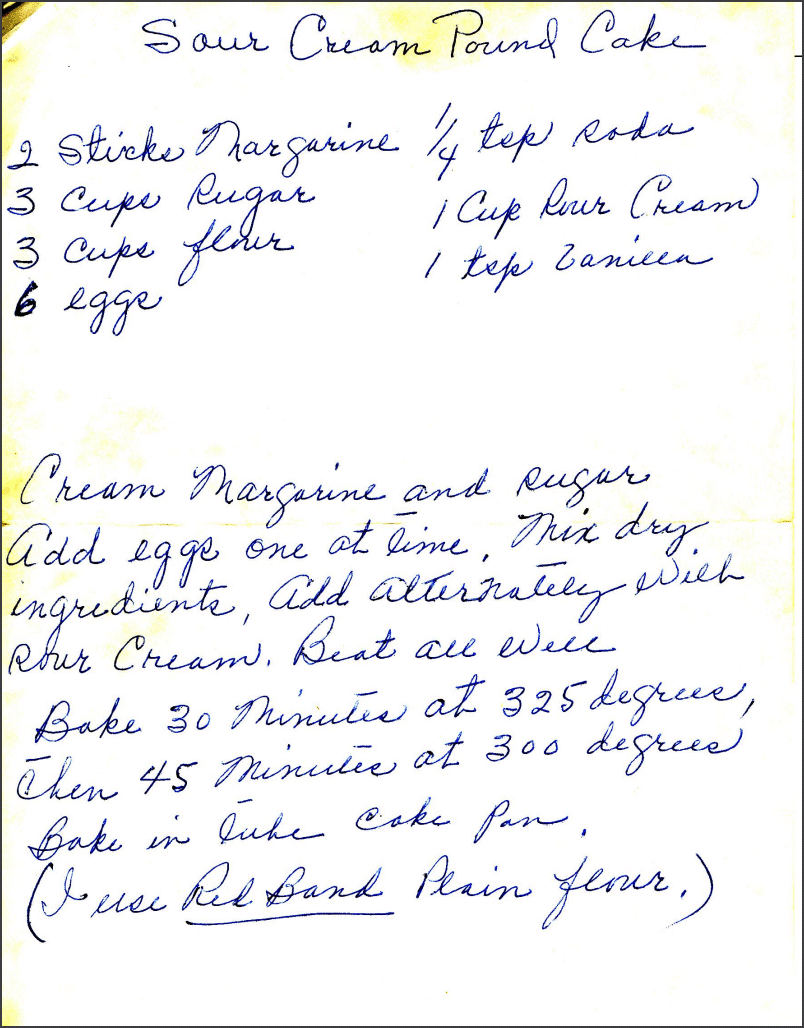 Sour Cream Pound Cake
2 Sticks Margarine 1/4 tsp soda
3 Cups Sugar 1 Cup Sour Cream
3 Cups flour 1 tsp Vanilla
6 eggs
Cream Margarine and sugar
Add eggs one at time. Mix dry
ingredients, Add alternately With
sour Cream. Beat all Well
Bake 30 Minutes at 325 degrees,
Then 45 Minutes at 300 degrees
Bake in tube Cake Pan.
(I use Red Band Plain flour.)